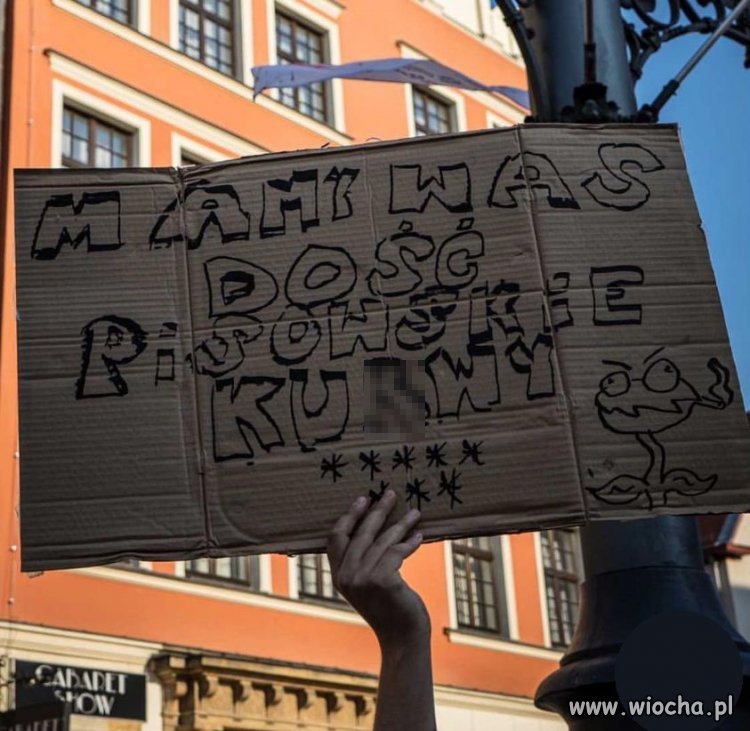 MAMY WAS
DOŚĆ
PiSOWSKIE
KU WY
*****
***
CABARET
SHOW
CABARET
www.wiocha.pl